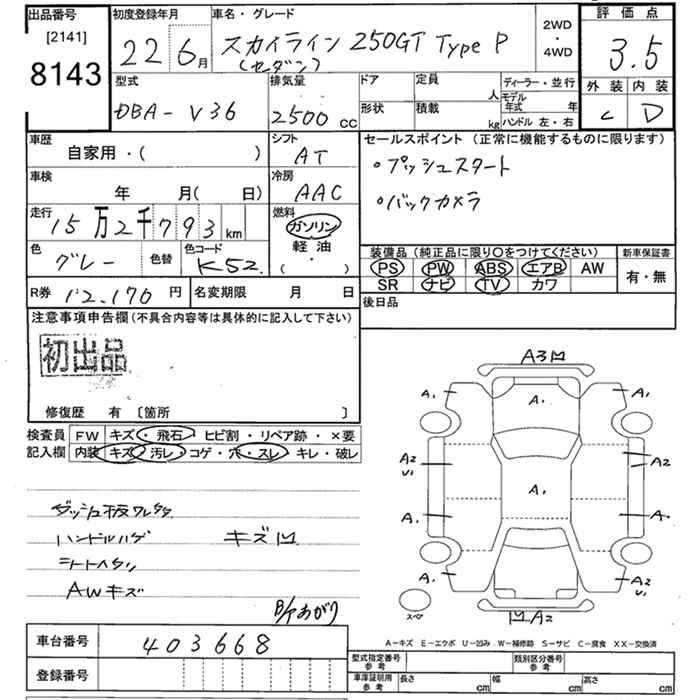 出品番号
[2141]
8143
初度登録年月
22 6月
車名・グレード
スカイライン 250GT Type P
(セダン)
2WD
・
4WD
評価点
3.5
型式
DBA-V36
排気量
2500 CC
ドア
形状
定員
人
積載
kg
ディーラー・並行
モデル年式 年
ハンドル 左・右
外装 内装
C D
車歴
自家用・( )
シフト
AT
セールスポイント (正常に機能するものに限ります)
・プッシュスタート
・バックカメラ
車検
年 月( 日)
冷房
AAC
走行
15万2千793 km
燃料
ガソリン
軽油
( ・ )
色
グレー
色替
色コード
K52
装備品 (純正品に限り〇をつけてください)
PS PW ABS エアB AW
SR ナビ TV カワ
新車保証書
有・無
R券 12,170 円
名変期限 月 日
後日品
注意事項申告欄 (不具合内容等は具体的に記入して下さい)
初出品
修復歴 有 [箇所 ]
検査員
記入欄
FW キズ・飛石・ヒビ割・リペア跡・×要
内装 キズ・汚レ・コゲ・穴・スレ・キレ・破レ
ダッシュ板ワレ
ハンドルハゲ キズ凹
シートヘタリ
AWキズ
B/Tあがり
A3凹
A1 A1
A1
A2 U1
A2
A1
A1 A
A1
A2 U1
スペア
凹A2
車台番号 403668
登録番号
A-キズ E-エクボ U-凹み W-補修跡 S-サビ C-腐食 XX-交換済
型式指定番号 参考
類別区分番号 参考
車庫証明用 参考
長さ cm
幅 cm
高さ cm